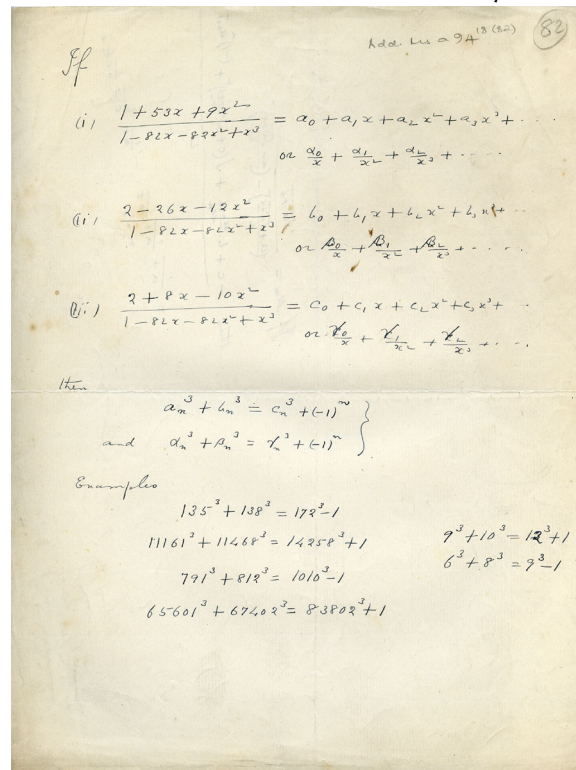 Add. Ms a 94 18 (82)
82
If
(i) (1 + 53x + 9x²)/(1 - 82x - 82x² + x³) = a₀ + a₁x + a₂x² + a₃x³ + ....
or α₀/x + α₁/x² + α₂/x³ + ....
(ii) (2 - 26x - 12x²)/(1 - 82x - 82x² + x³) = b₀ + b₁x + b₂x² + b₃x³ + ..
or β₀/x + β₁/x² + β₂/x³ + ....
(iii) (2 + 8x - 10x²)/(1 - 82x - 82x² + x³) = c₀ + c₁x + c₂x² + c₃x³ + ..
or γ₀/x + γ₁/x² + γ₂/x³ + ....
then
aₙ³ + bₙ³ = cₙ³ + (-1)ⁿ }
and αₙ³ + βₙ³ = γₙ³ + (-1)ⁿ }
Examples
135³ + 138³ = 172³ - 1
11161³ + 11468³ = 14258³ + 1
791³ + 812³ = 1010³ - 1
65601³ + 67402³ = 83802³ + 1
9³ + 10³ = 12³ + 1
6³ + 8³ = 9³ - 1